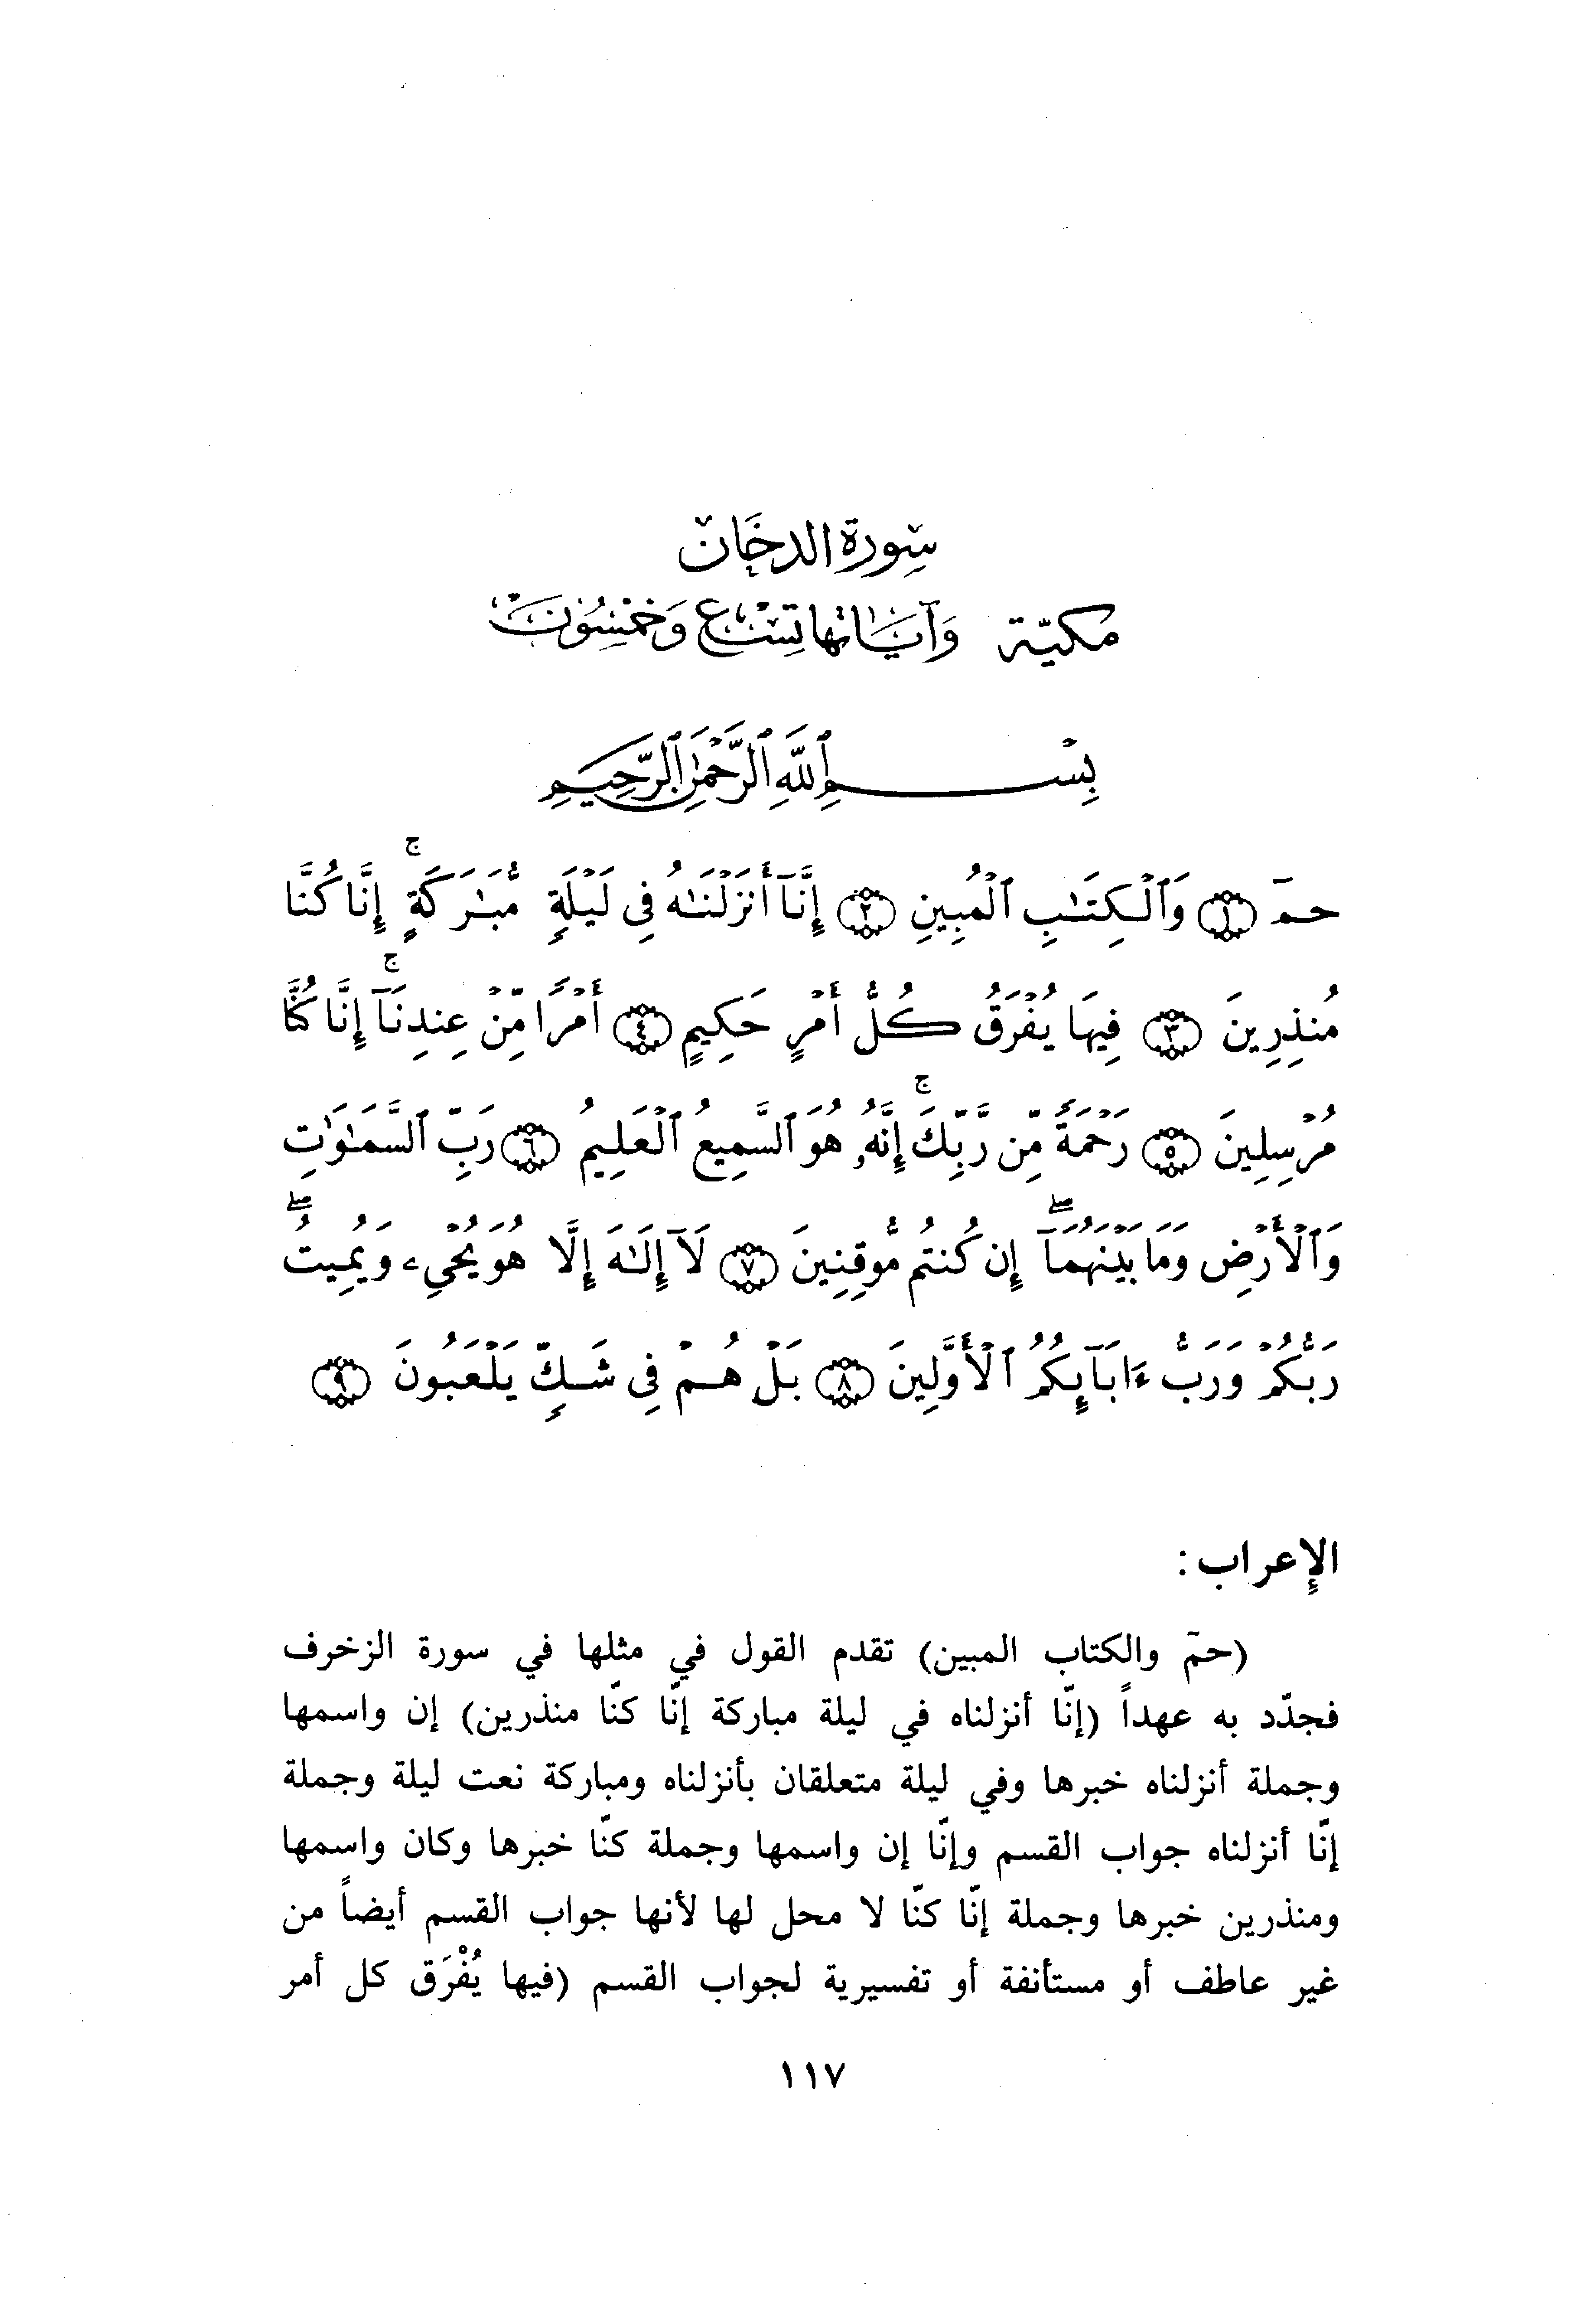 سورة الدخان
مكيّة وَآيَاتها تِسْع وَخَمْسُونَ
بِسْمِ ٱللَّهِ ٱلرَّحْمَٰنِ ٱلرَّحِيمِ
حمٓ ۝١ وَٱلْكِتَٰبِ ٱلْمُبِينِ ۝٢ إِنَّآ أَنزَلْنَٰهُ فِى لَيْلَةٍ مُّبَٰرَكَةٍ ۚ إِنَّا كُنَّا
مُنذِرِينَ ۝٣ فِيهَا يُفْرَقُ كُلُّ أَمْرٍ حَكِيمٍ ۝٤ أَمْرًا مِّنْ عِندِنَآ ۚ إِنَّا كُنَّا
مُرْسِلِينَ ۝٥ رَحْمَةً مِّن رَّبِّكَ ۚ إِنَّهُۥ هُوَ ٱلسَّمِيعُ ٱلْعَلِيمُ ۝٦ رَبِّ ٱلسَّمَٰوَٰتِ
وَٱلْأَرْضِ وَمَا بَيْنَهُمَآ ۖ إِن كُنتُم مُّوقِنِينَ ۝٧ لَآ إِلَٰهَ إِلَّا هُوَ يُحْىِۦ وَيُمِيتُ ۖ
رَبُّكُمْ وَرَبُّ ءَابَآئِكُمُ ٱلْأَوَّلِينَ ۝٨ بَلْ هُمْ فِى شَكٍّ يَلْعَبُونَ ۝٩
الإعراب :
(حمۤ والكتاب المبين) تقدم القول في مثلها في سورة الزخرف
فجدّد به عهداً (إنّا أنزلناه في ليلة مباركة إنّا كنّا منذرين) إن واسمها
وجملة أنزلناه خبرها وفي ليلة متعلقان بأنزلناه ومباركة نعت ليلة وجملة
إنّا أنزلناه جواب القسم وإنّا إن واسمها وجملة كنّا خبرها وكان واسمها
ومنذرين خبرها وجملة إنّا كنّا لا محل لها لأنها جواب القسم أيضاً من
غير عاطف أو مستأنفة أو تفسيرية لجواب القسم (فيها يُفْرَق كل أمر
١١٧